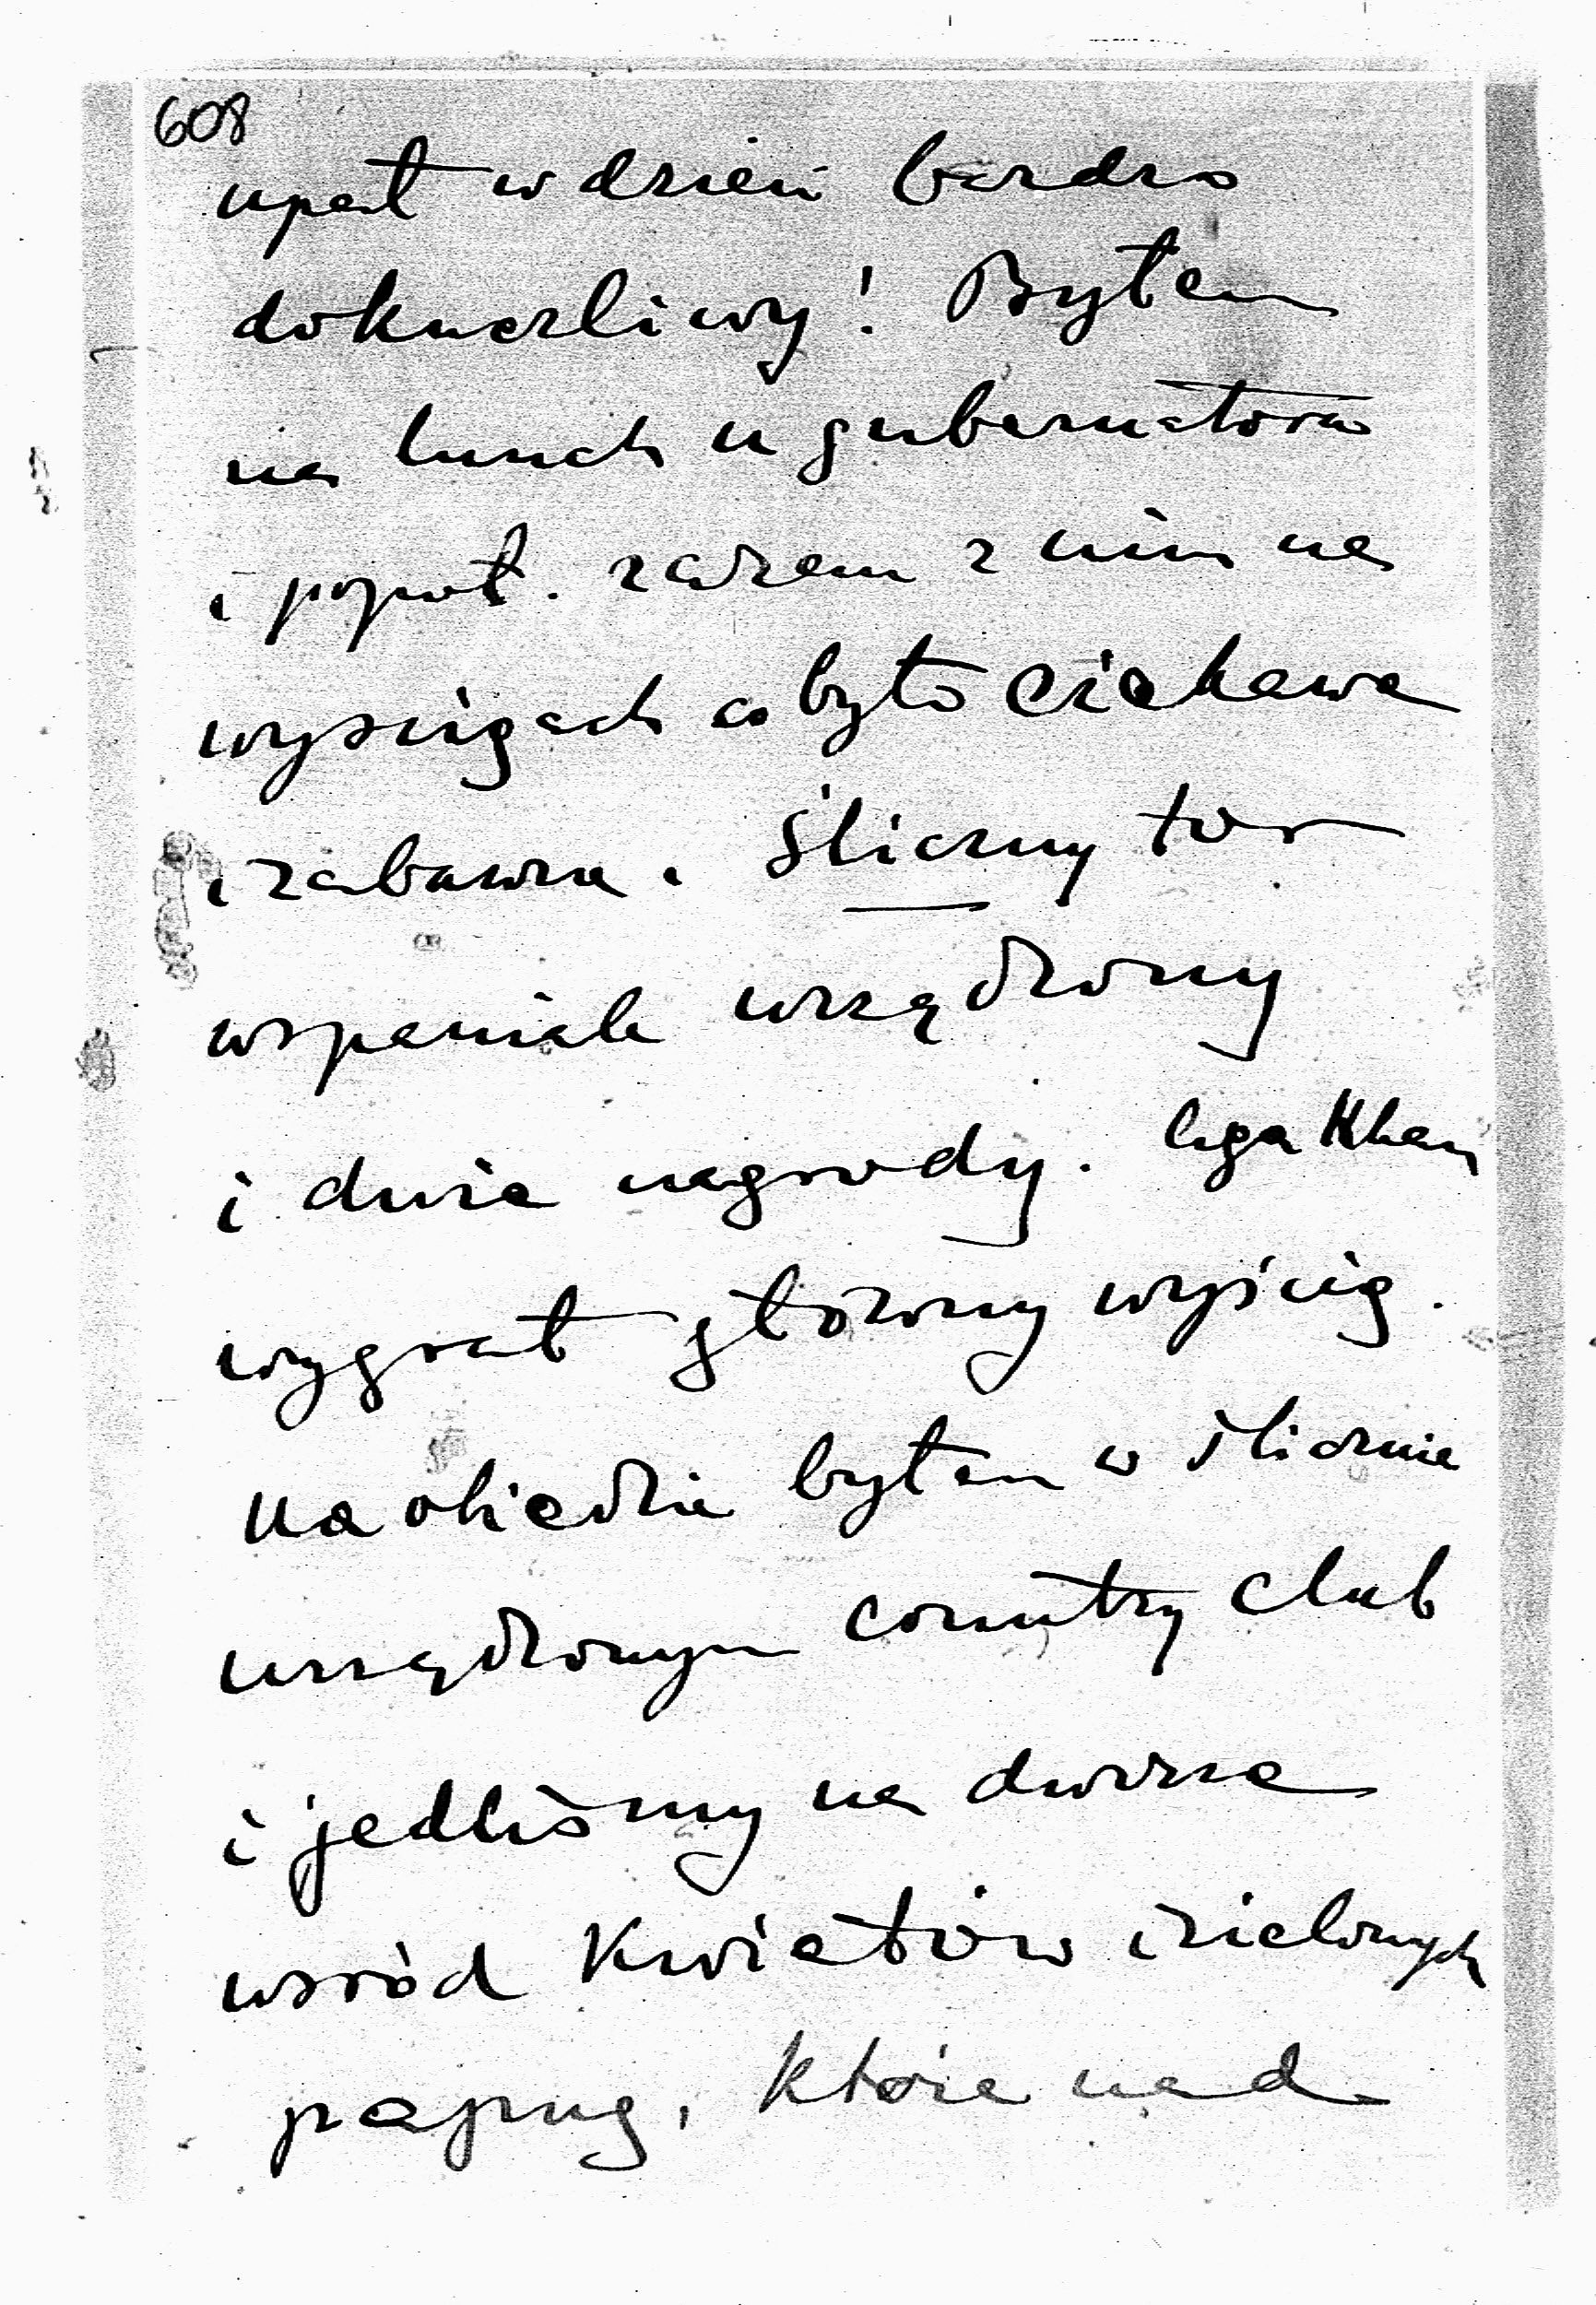 608
upał w dzień bardzo
dokuczliwy! Byłem
na lunch u gubernatora
i popoł. razem z nim na
wyścigach co było ciekawe
i zabawne. Śliczny tor
wspaniale urządzony
i duże nagrody. Aga Khan
wygrał główny wyścig.
Na obiedzie byłem w ślicznie
urządzonym country club
i jedliśmy na dworze
wśród kwiatów i zielonych
papug, które nad